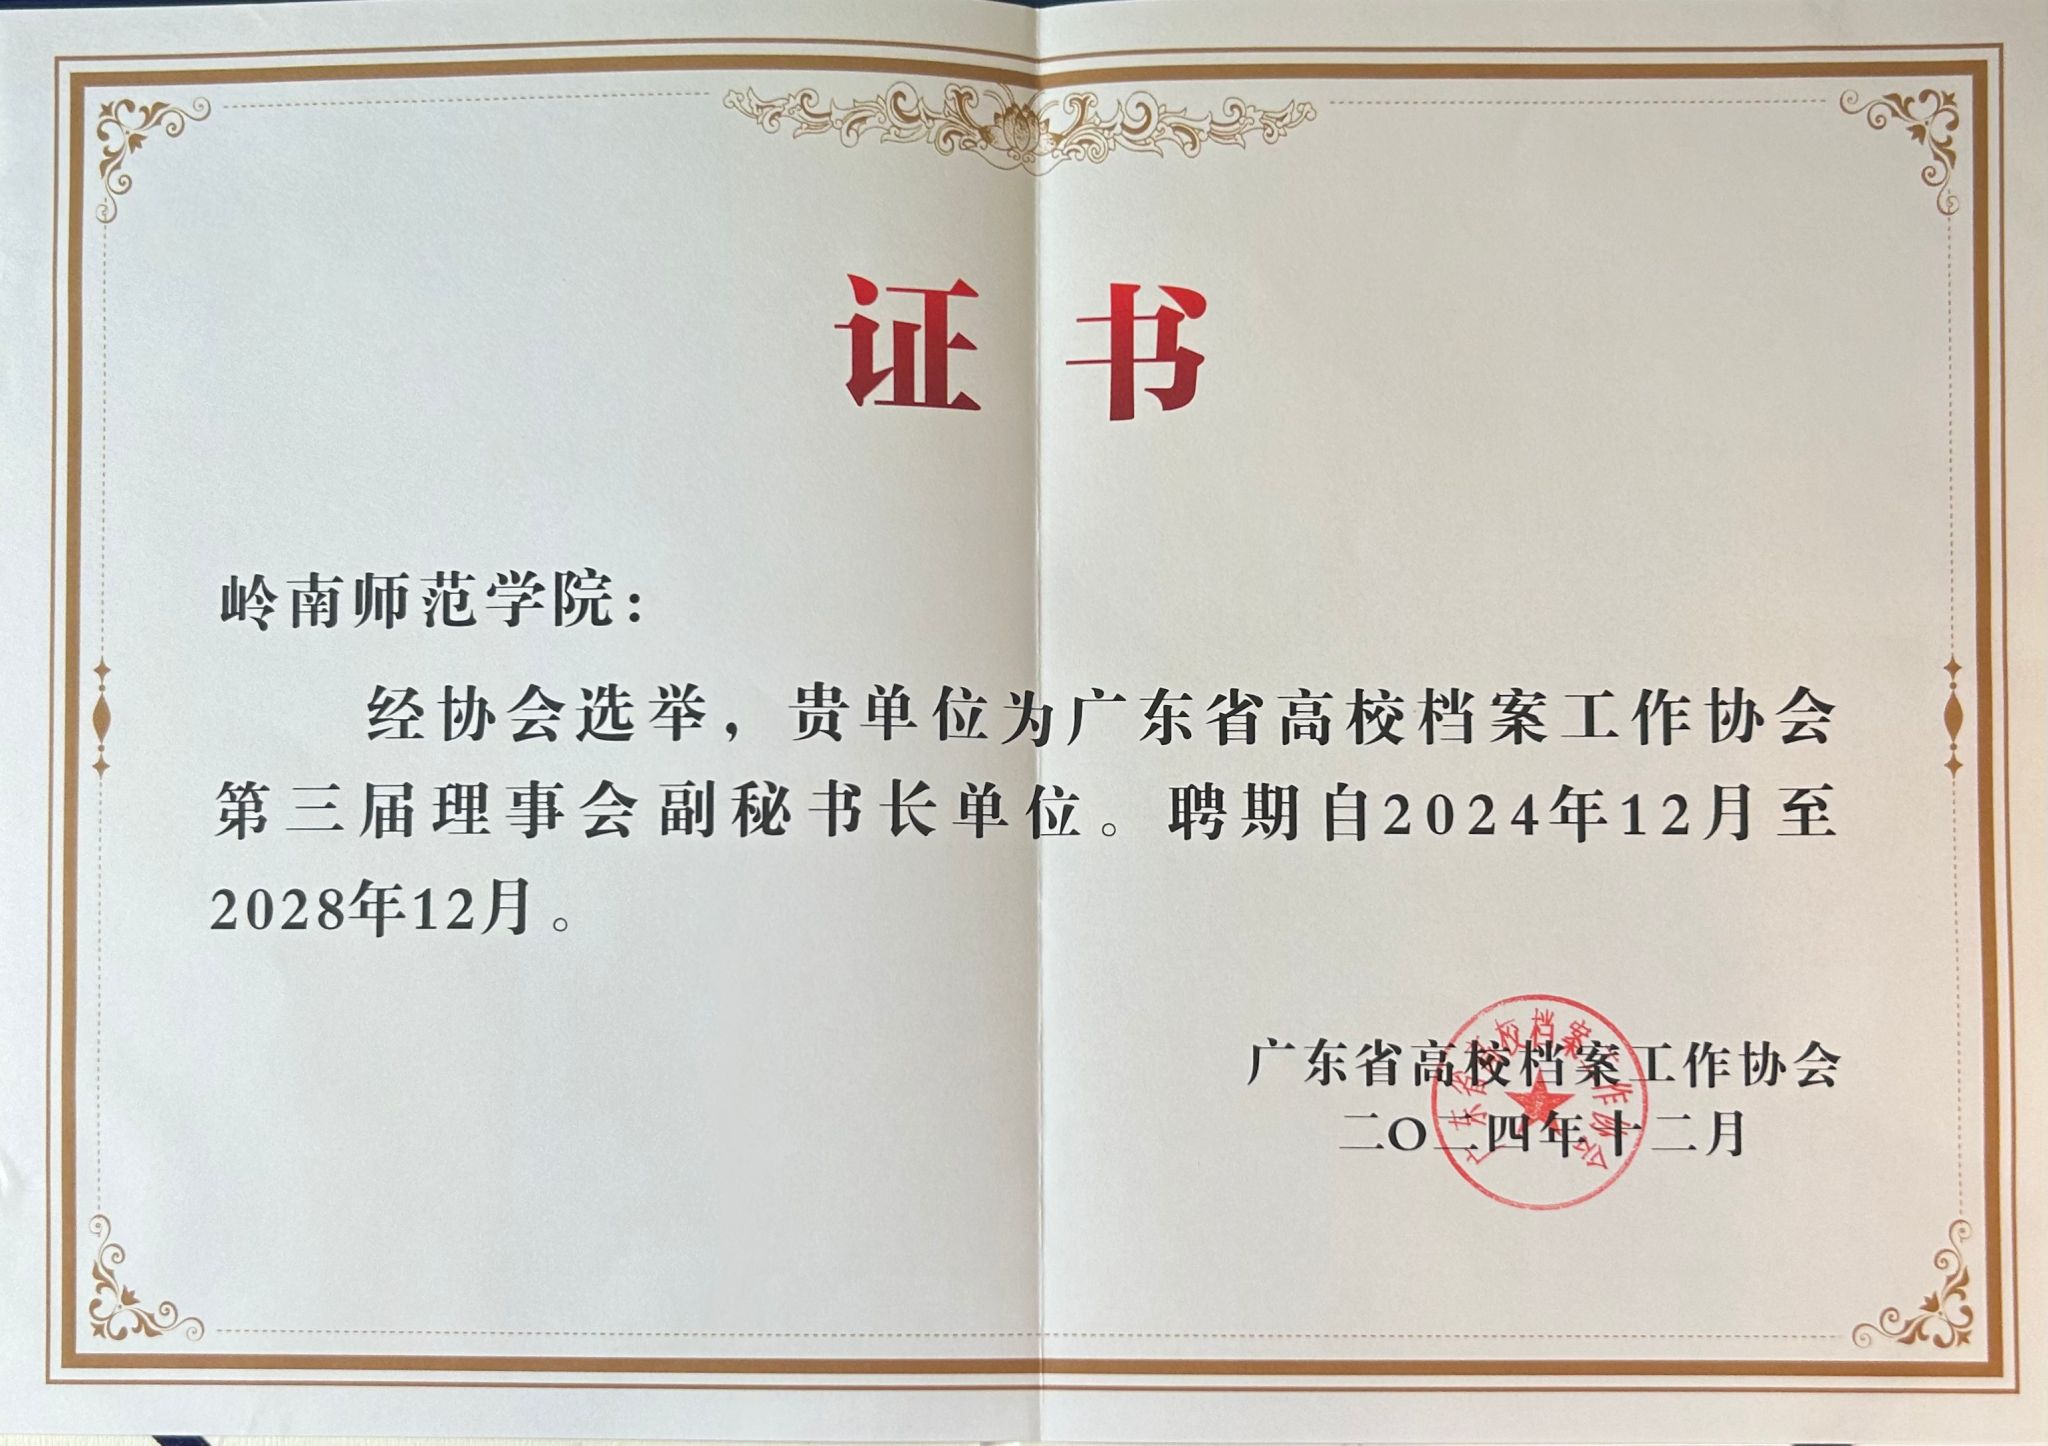 证书
岭南师范学院：
经协会选举，贵单位为广东省高校档案工作协会
第三届理事会副秘书长单位。聘期自2024年12月至
2028年12月。
广东省高校档案工作协会
二〇二四年十二月
广东省高校档案工作协会